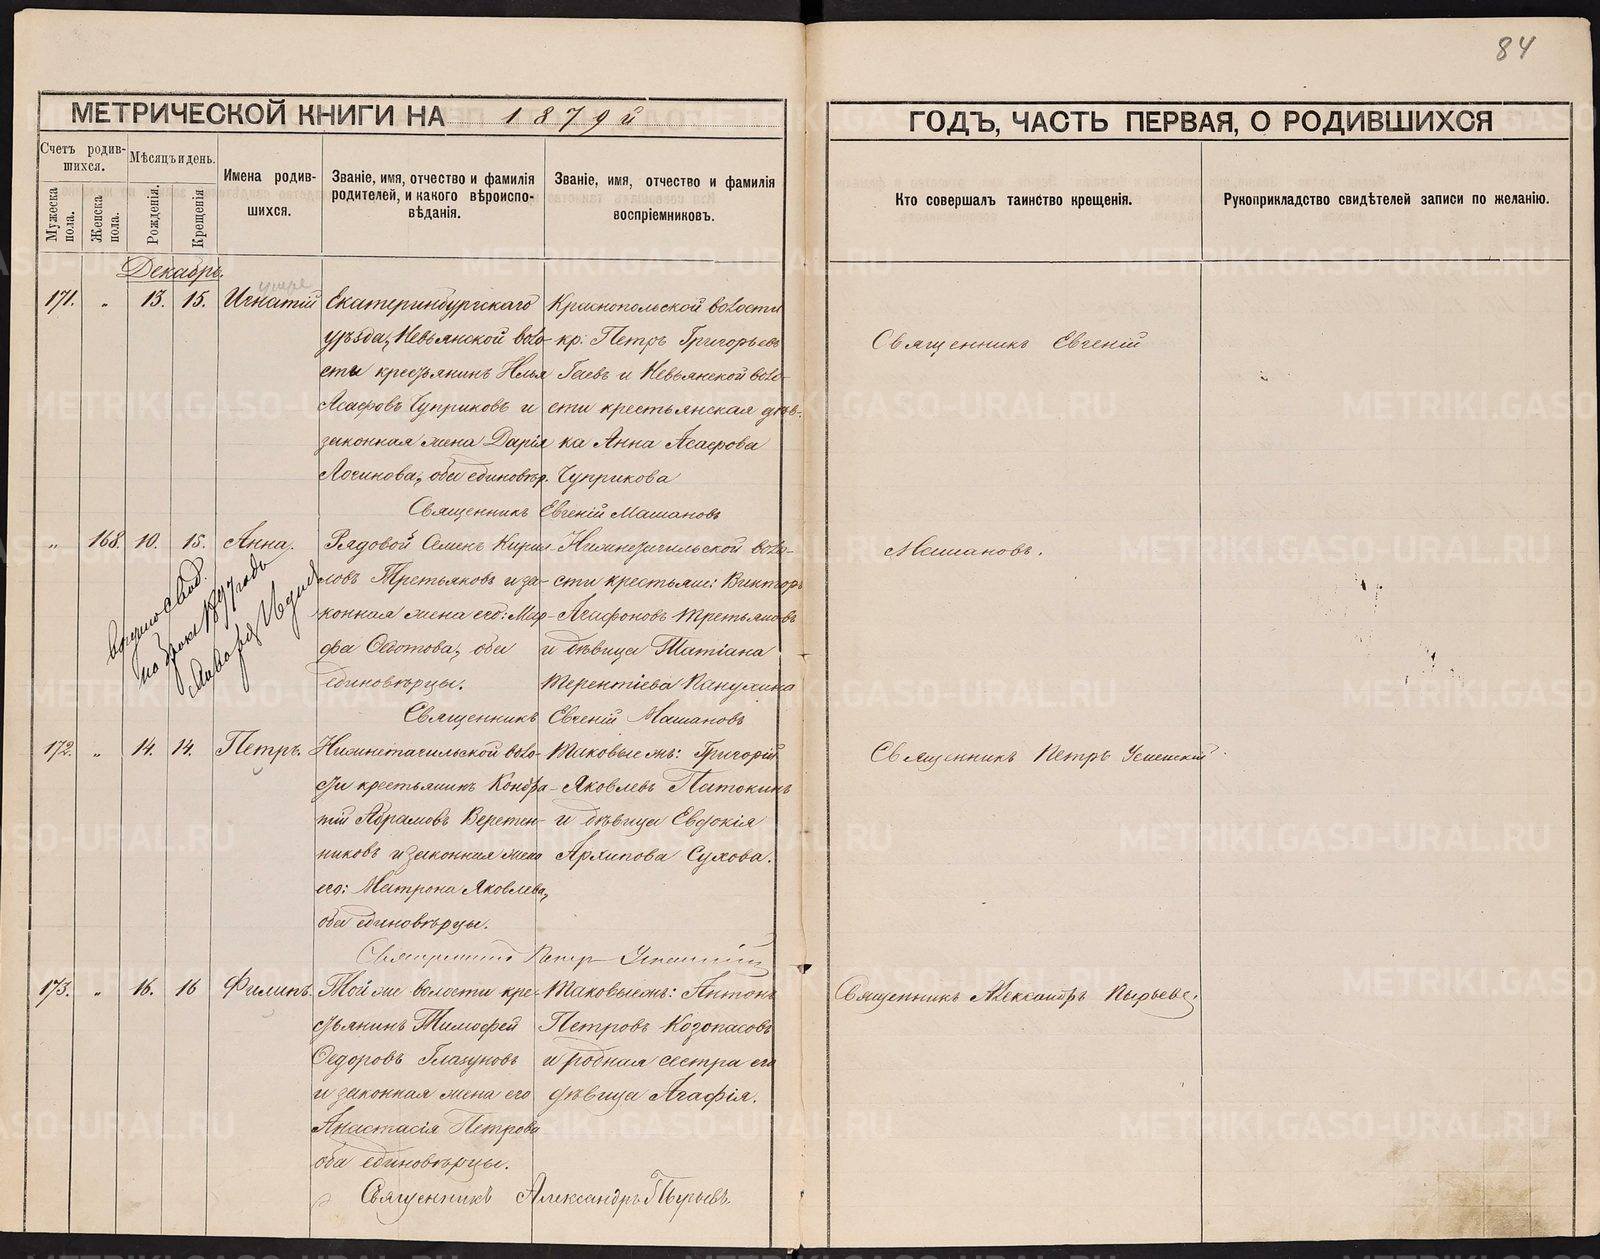 84
МЕТРИЧЕСКОЙ КНИГИ НА 1879й
ГОДЪ, ЧАСТЬ ПЕРВАЯ, О РОДИВШИХСЯ
Счетъ родив-
шихся.
Мужеска пола.
Женска пола.
Мѣсяцъ и день.
Рожденія.
Крещенія
Имена родив-
шихся.
Званіе, имя, отчество и фамилія
родителей, и какого вѣроиспо-
вѣданія.
Званіе, имя, отчество и фамилія
воспріемниковъ.
Кто совершалъ таинство крещенія.
Рукоприкладство свидѣтелей записи по желанію.
Декабрь.
умре
171. „ 13. 15. Игнатій
Екатеринбургскаго
уѣзда, Невьянской воло-
сти крестьянинъ Илья
Асафовъ Чуприковъ и
законная жена Дарія
Логинова, оба единовѣр.
Краснопольской волости
кр. Петръ Григорьевъ
Гаевъ и Невьянской воло-
сти крестьянская дѣв-
ка Анна Асафова
Чуприкова
Священникъ Евгеній
Священникъ Евгеній Машановъ
„ 168. 10. 15. Анна.
Рядовой Семенъ Кирил-
ловъ Третьяковъ и за-
конная жена его: Мар-
фа Федотова, оба
единовѣрцы.
Нижнетагильской воло-
сти крестьяне: Викторъ
Агафоновъ Третьяковъ
и дѣвица Татіана
Терентіева
Машановъ.
1897 года
Священникъ Евгеній Машановъ
172. „ 14. 14. Петръ.
Нижнетагильской воло-
сти крестьянинъ Кондра-
тій Абрамовъ Веретен-
никовъ и законная жена
его: Матрона Яковлева,
оба единовѣрцы.
Таковые жъ: Григорій
Яковлевъ Патокинъ
и дѣвица Евдокія
Архипова Сухова.
Священникъ Петръ
Священникъ Петръ
173. „ 16. 16 Филипъ.
Той же волости кре-
стьянинъ Тимофей
Федоровъ Глазуновъ
и законная жена его
Анастасія Петрова
оба единовѣрцы.
Таковые жъ: Антонъ
Петровъ Козопасовъ
и родная сестра его
дѣвица Агафія.
Священникъ Александръ Пырьевъ.
Священникъ Александръ Пырьевъ
METRIKI.GASO-URAL.RU